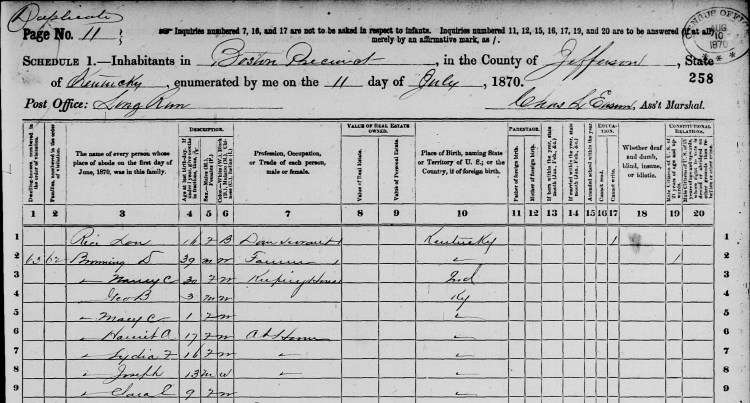 Duplicate
Page No. 11
Inquiries numbered 7, 16, and 17 are not to be asked in respect to infants. Inquiries numbered 11, 12, 15, 16, 17, 19, and 20 are to be answered (if at all)
merely by an affirmative mark, as /.
CENSUS OFFICE
AUG 10 1870
SCHEDULE 1.—Inhabitants in Boston Precinct, in the County of Jefferson, State
of Kentucky, enumerated by me on the 11 day of July, 1870.
258
Post Office: Long Run
Chas L, Ass't Marshal.
DESCRIPTION.
VALUE OF REAL ESTATE OWNED.
PARENTAGE.
EDUCATION.
CONSTITUTIONAL RELATIONS.
Dwelling-houses, numbered in the order of visitation.
Families, numbered in the order of visitation.
The name of every person whose place of abode on the first day of June, 1870, was in this family.
Profession, Occupation, or Trade of each person, male or female.
Value of Real Estate.
Value of Personal Estate.
Place of Birth, naming State or Territory of U. S.; or the Country, if of foreign birth.
Father of foreign birth.
Mother of foreign birth.
Attended school within the year.
Cannot read.
Cannot write.
Whether deaf and dumb, blind, insane, or idiotic.
1 2 3 4 5 6 7 8 9 10 11 12 13 14 15 16 17 18 19 20
1 Rice 16 F B Dom servant Kentucky 1 1
2 63 62 Browning D 39 M W Farmer " 1 2
3 " Nancy C 30 F W Keeping House Ind 3
4 " Geo B 3 M W Ky 4
5 " Mary C 1 F W " 5
6 " Harriet A 17 F W At Home " 6
7 " Lydia F 16 F W " " 7
8 " Joseph 13 M W " " 8
9 " Clara E 9 F W " 9